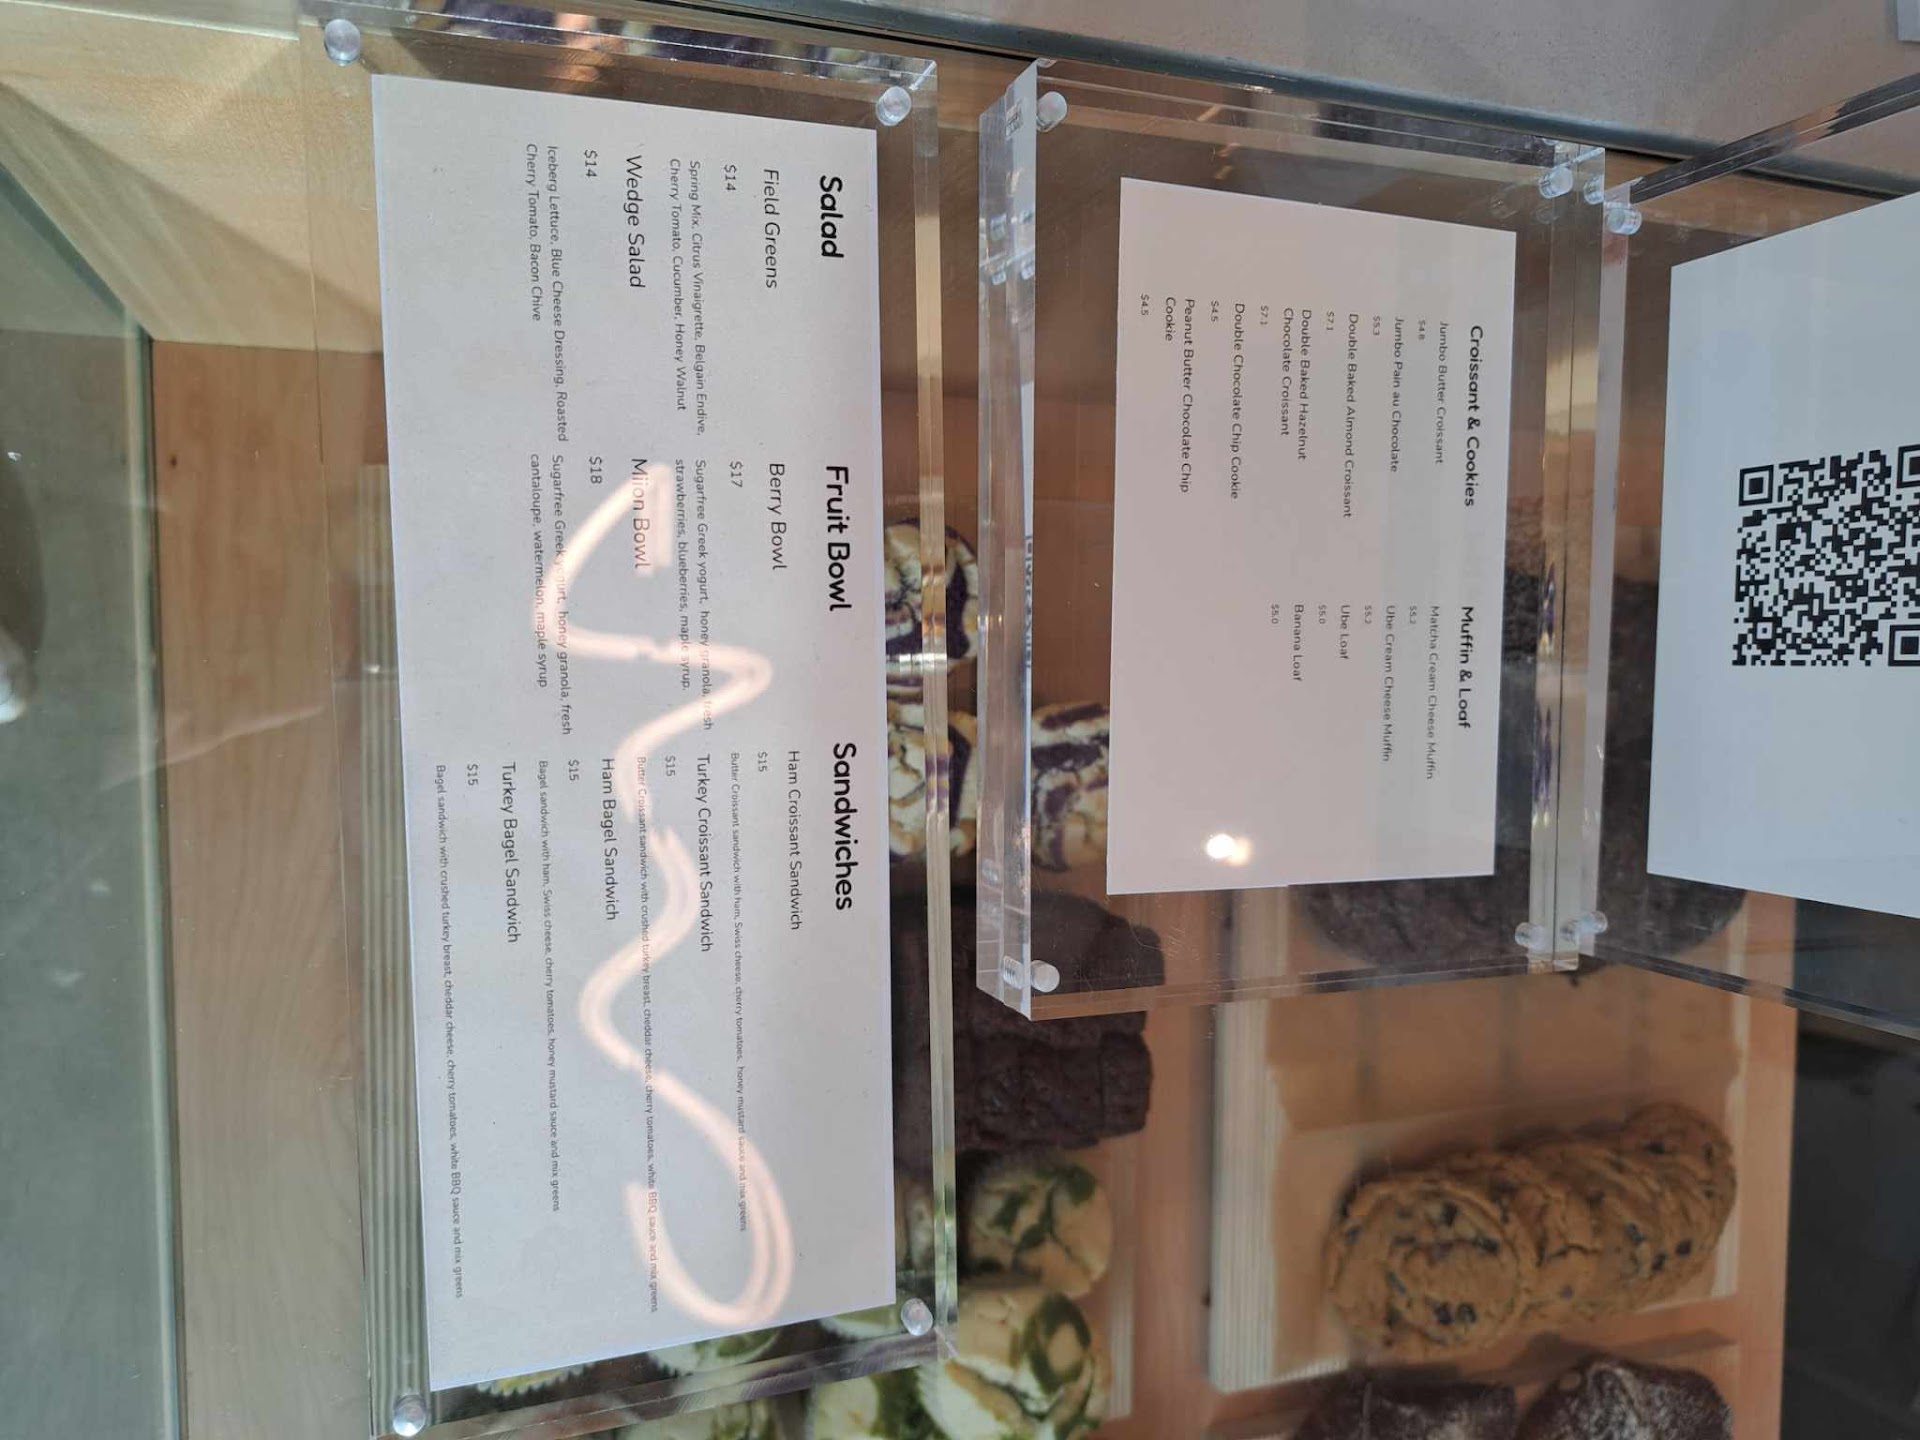 Salad
Field Greens
$14
Spring Mix, Citrus Vinaigrette, Belgain Endive,
Cherry Tomato, Cucumber, Honey Walnut
Wedge Salad
$14
Iceberg Lettuce, Blue Cheese Dressing, Roasted
Cherry Tomato, Bacon Chive
Fruit Bowl
Berry Bowl
$17
Sugarfree Greek yogurt, honey granola, fresh
strawberries, blueberries, maple syrup.
Mlion Bowl
$18
Sugarfree Greek yogurt, honey granola, fresh
cantaloupe, watermelon, maple syrup
Sandwiches
Ham Croissant Sandwich
$15
Butter Croissant sandwich with ham, Swiss cheese, cherry tomatoes, honey mustard sauce and mix greens
Turkey Croissant Sandwich
$15
Butter Croissant sandwich with crushed turkey breast, cheddar cheese, cherry tomatoes, white BBQ sauce and mix greens
Ham Bagel Sandwich
$15
Bagel sandwich with ham, Swiss cheese, cherry tomatoes, honey mustard sauce and mix greens
Turkey Bagel Sandwich
$15
Bagel sandwich with crushed turkey breast, cheddar cheese, cherry tomatoes, white BBQ sauce and mix greens
Croissant & Cookies
Jumbo Butter Croissant
$4.8
Jumbo Pain au Chocolate
$5.3
Double Baked Almond Croissant
$7.1
Double Baked Hazelnut
Chocolate Croissant
$7.1
Double Chocolate Chip Cookie
$4.5
Peanut Butter Chocolate Chip
Cookie
$4.5
Muffin & Loaf
Matcha Cream Cheese Muffin
$5.2
Ube Cream Cheese Muffin
$5.2
Ube Loaf
$5.0
Banana Loaf
$5.0